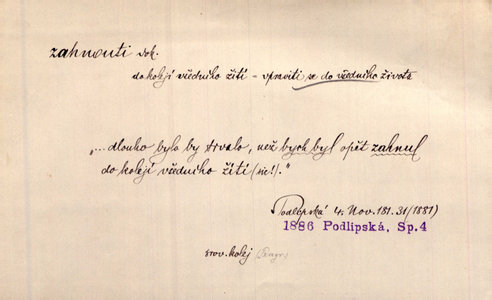 zahnouti dok.
do kolejí všedního žití = vpraviti se do všedního života
„... dlouho bylo by trvalo, než bych byl opět zahnul
do kolejí všedního žití (sic!)."
Podlipská 4. Nov. 181. 31 (1881)
1886 Podlipská, Sp.4
srov. kolej